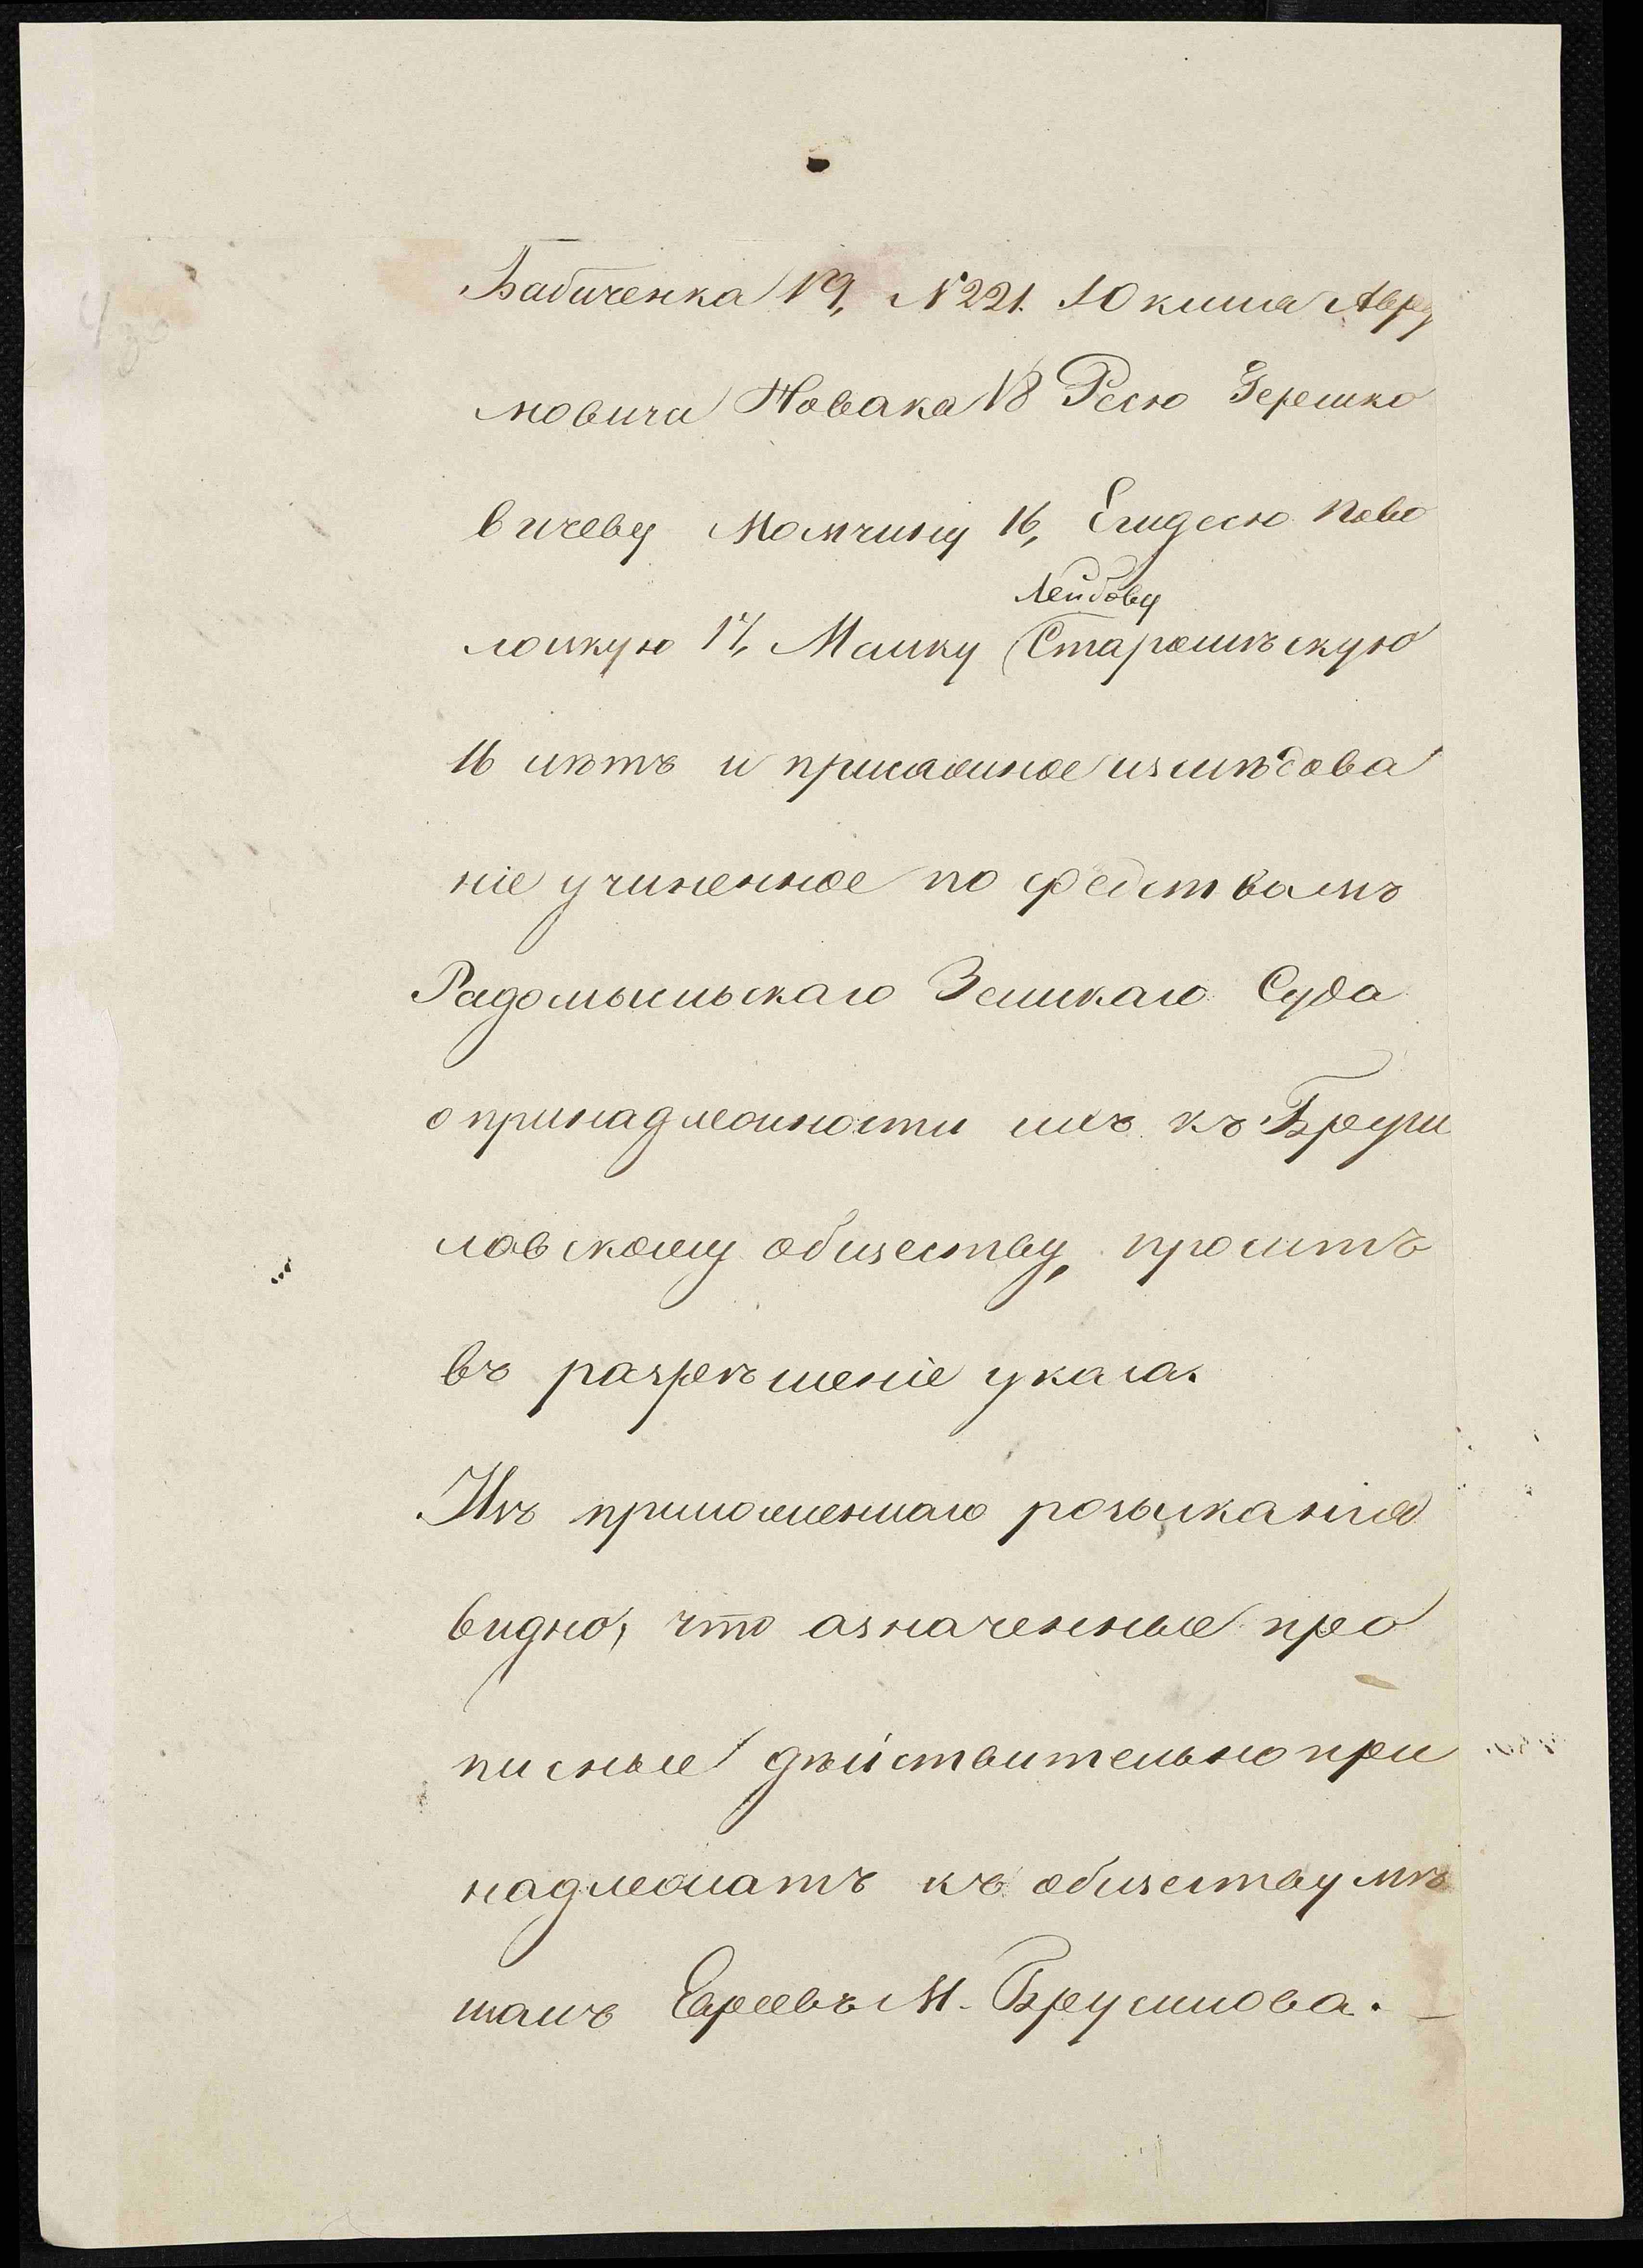 Бабиченка 19, №221. Юкиша Авра
мовича Новака 18 Ресю Герешко
вичеву Момчину 16, Егидесю Пово
лоцкую 17, Машку Старосельскую
Лейбову
16 летъ и присланное изследова
ніе учиненное по средствамъ
Радомысльскаго Земскаго Суда
о принадлежности ихъ къ Бруси
ловскому обществу, проситъ
въ разрешеніе указа.
Изъ приложеннаго розысканія
видно, что означенные про
писные действительно при
надлежатъ къ обществу мѣ
щанъ Евреевъ М. Брусилова.